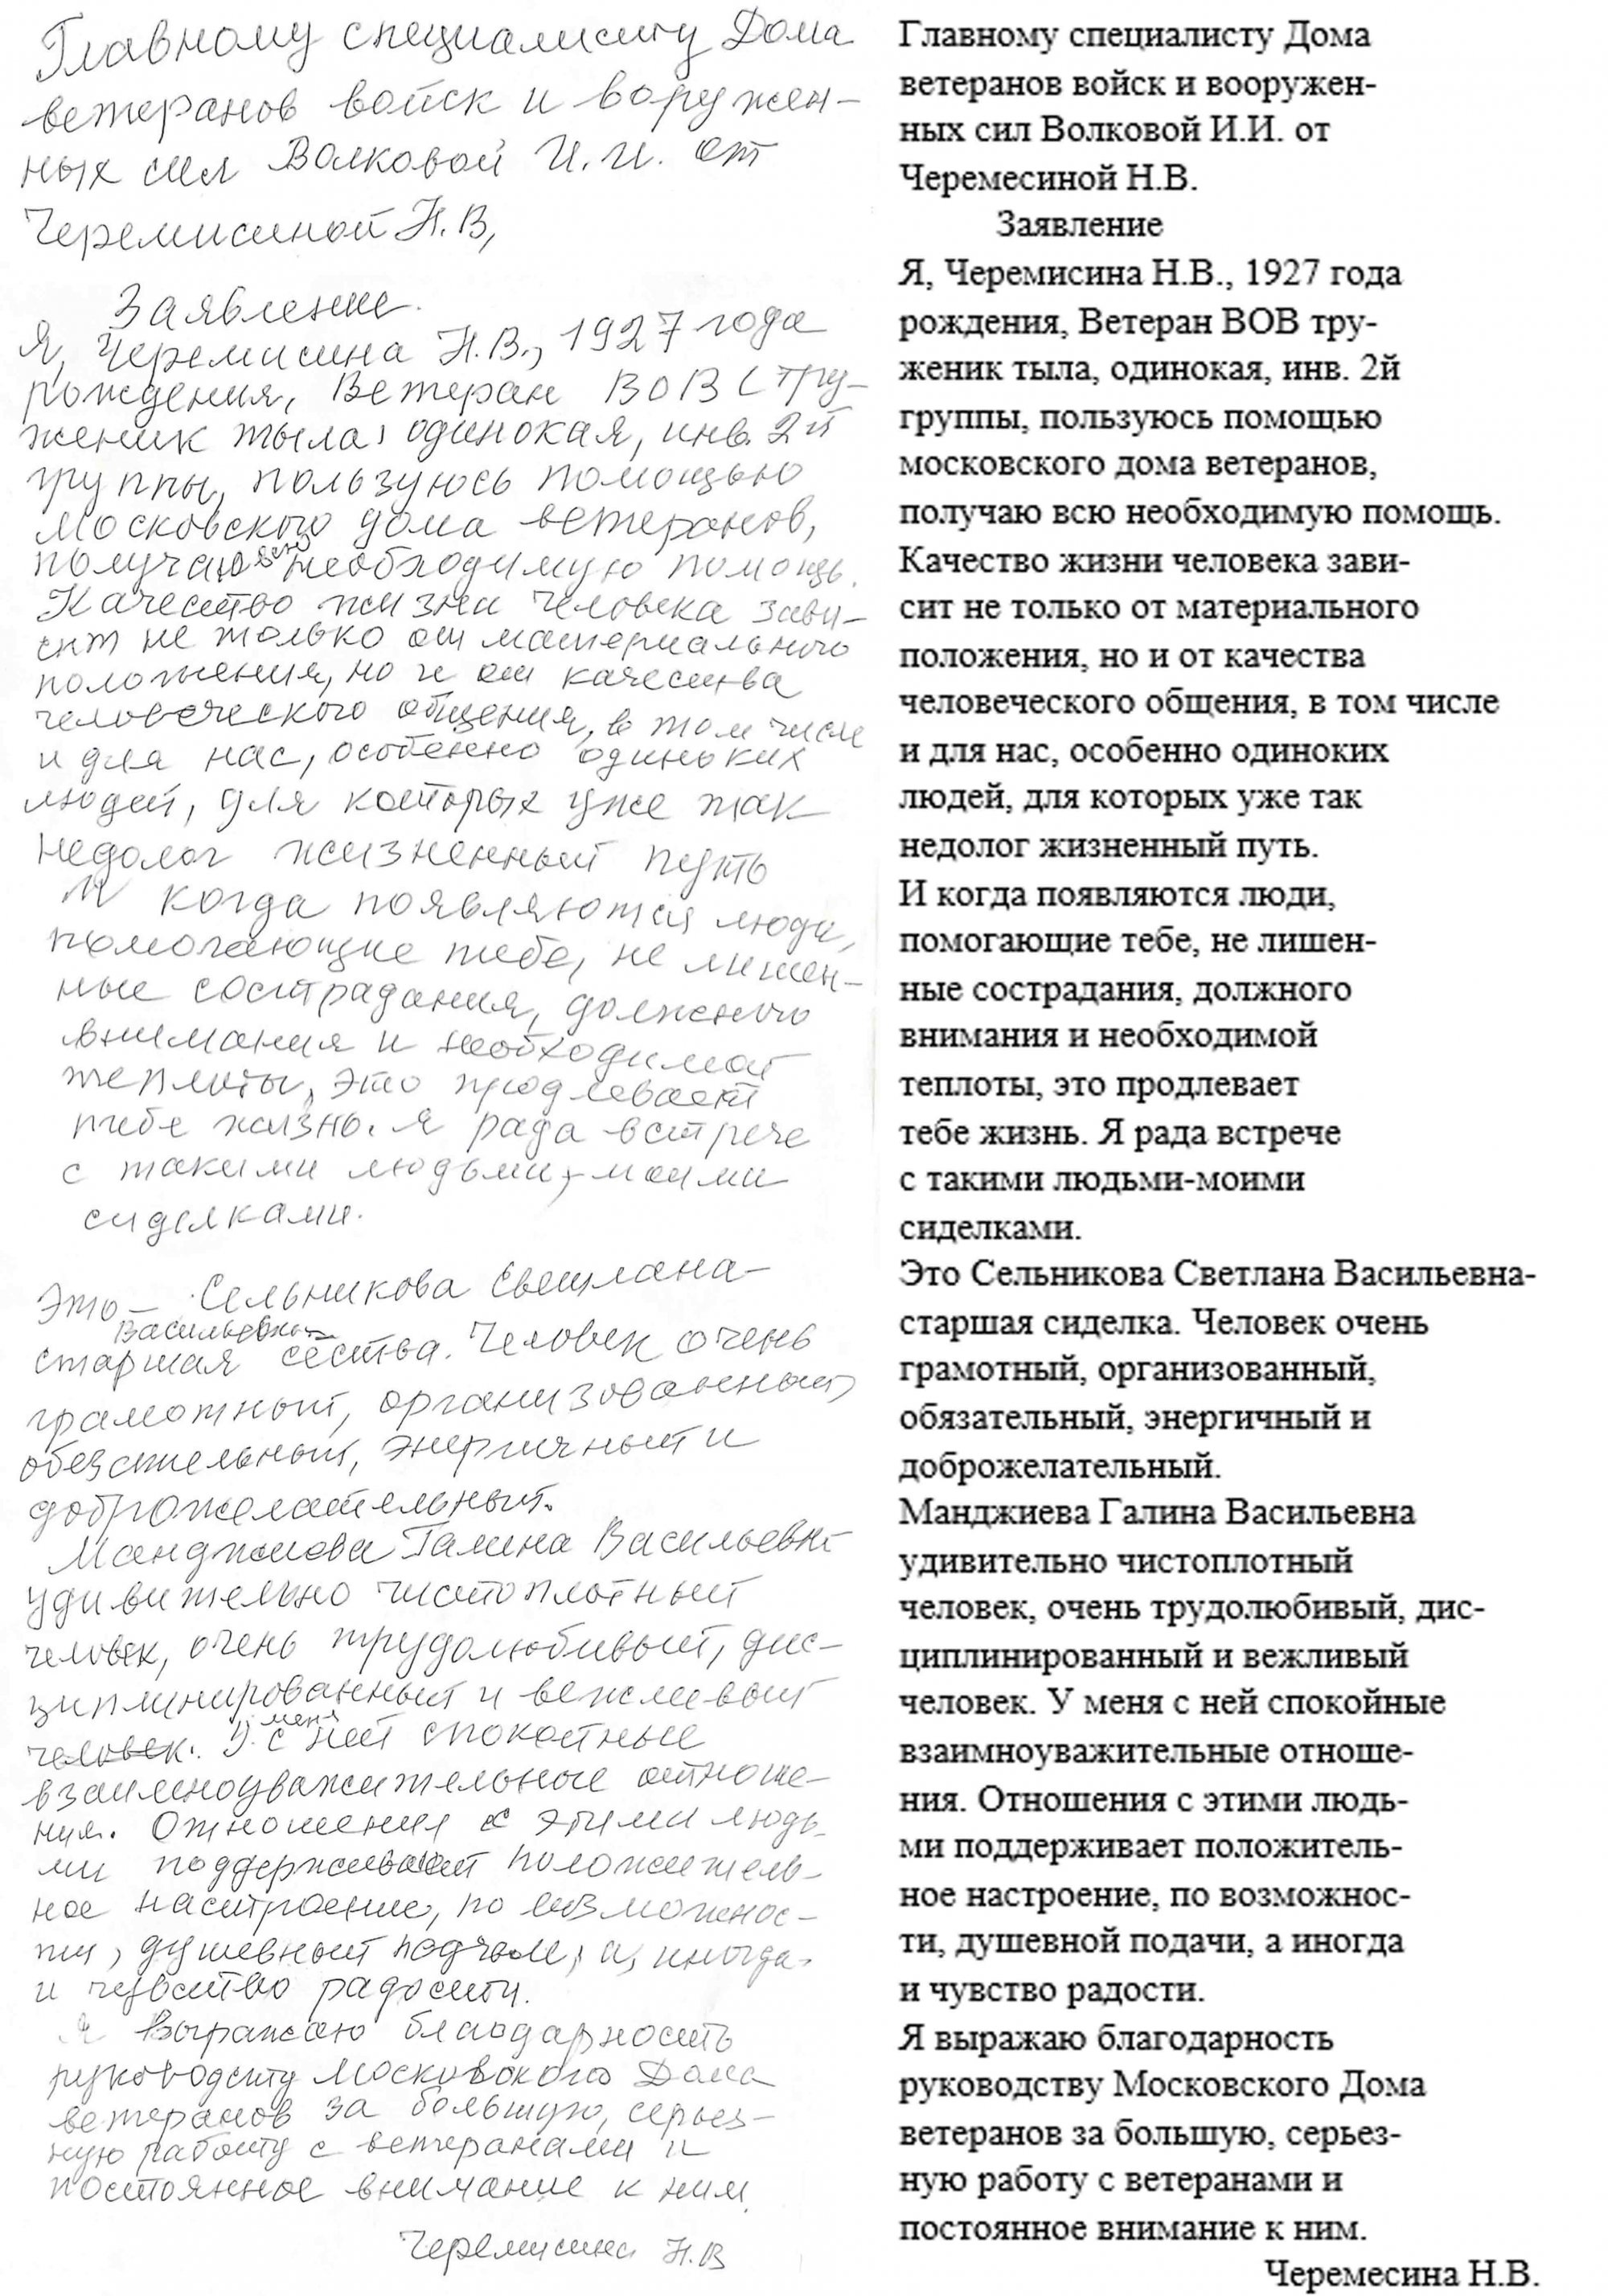 Главному специалисту Дома
ветеранов войск и воружен-
ных сил Волковой И.И. от
Черемисиной Н.В,
Заявление.
Я, Черемисина Н.В., 1927 года
рождения, Ветеран ВОВ (тру-
женик тыла, одинокая, инв. 2й
группы, пользуюсь помощью
московского дома ветеранов,
получаю всю необходимую помощь.
Качество жизни человека зави-
сит не только от материального
положения, но и от качества
человеческого общения, в том числе
и для нас, особенно одиноких
людей, для которых уже так
недолог жизненный путь
И когда появляются люди,
помогающие тебе, не лишен-
ные сострадания, должного
внимания и необходимой
теплоты, это продлевает
тебе жизнь. Я рада встрече
с такими людьми, – моими
сиделками.
Это – Сельникова Светлана –
Васильевна –
старшая сества. Человек очень
грамотный, организованный,
обязательный, энергичный и
доброжелательный.
Манджиева Галина Васильевна
удивительно чистоплотный
человек, очень трудолюбивый, дис-
циплинированный и вежливый
человек. У меня с ней спокойные
взаимноуважительные отноше-
ния. Отношения с этими людь-
ми поддерживает положитель-
ное настроение, по возможнос-
ти, душевный подъем, а, иногда,
и чувство радости.
Я выражаю благодарность
руководству Московского Дома
ветеранов за большую, серьез-
ную работу с ветеранами и
постоянное внимание к ним.
Черемисина Н.В
Главному специалисту Дома
ветеранов войск и вооружен-
ных сил Волковой И.И. от
Черемесиной Н.В.
Заявление
Я, Черемисина Н.В., 1927 года
рождения, Ветеран ВОВ тру-
женик тыла, одинокая, инв. 2й
группы, пользуюсь помощью
московского дома ветеранов,
получаю всю необходимую помощь.
Качество жизни человека зави-
сит не только от материального
положения, но и от качества
человеческого общения, в том числе
и для нас, особенно одиноких
людей, для которых уже так
недолог жизненный путь.
И когда появляются люди,
помогающие тебе, не лишен-
ные сострадания, должного
внимания и необходимой
теплоты, это продлевает
тебе жизнь. Я рада встрече
с такими людьми-моими
сиделками.
Это Сельникова Светлана Васильевна-
старшая сиделка. Человек очень
грамотный, организованный,
обязательный, энергичный и
доброжелательный.
Манджиева Галина Васильевна
удивительно чистоплотный
человек, очень трудолюбивый, дис-
циплинированный и вежливый
человек. У меня с ней спокойные
взаимноуважительные отноше-
ния. Отношения с этими людь-
ми поддерживает положитель-
ное настроение, по возможнос-
ти, душевной подачи, а иногда
и чувство радости.
Я выражаю благодарность
руководству Московского Дома
ветеранов за большую, серьез-
ную работу с ветеранами и
постоянное внимание к ним.
Черемесина Н.В.